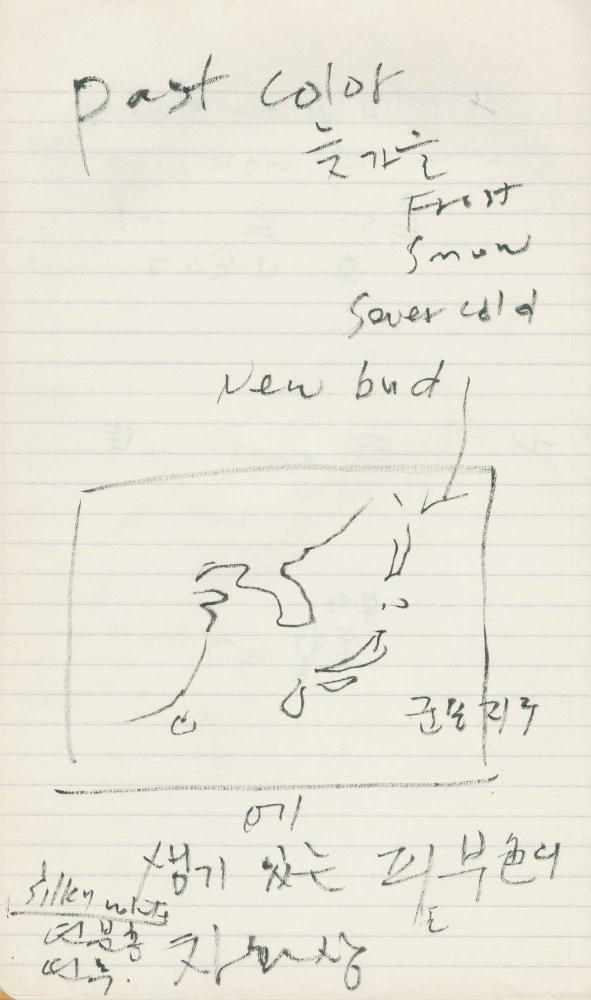 past color
늦가을
Frost
Snow
Sever cold
New bud
에
생기 있는 피부色의
silky white
연분홍
연녹.
자화상